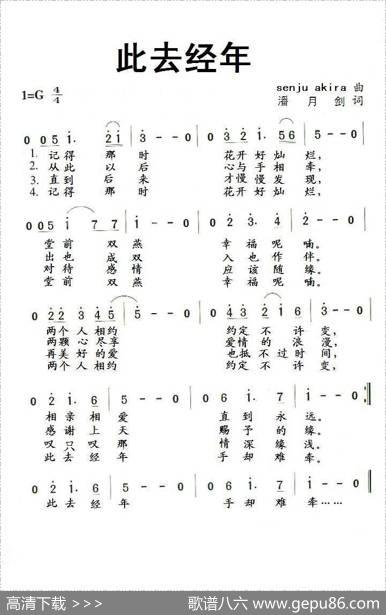 此去经年
1=G 4/4
senju akira 曲
潘月剑 词
0 0 5 1. 2 1 3 - - 0 0 3 2 2. 1 5 6 5 - - 0
1. 记得 那时 花开好灿烂,
2. 从此 以后 心与手相牵,
3. 直到 后来 才慢慢发现,
4. 记得 那时 花开好灿烂,
0 0 5 1 7 7 1 - - 0 0 2 3. 4 2 - - 0
堂前 双燕 幸福呢喃。
出也 成双 入也作伴。
对待 感情 应该随缘。
堂前 双燕 幸福呢喃。
0 2 2 3 4 5 5 - - 0 0 4 3 2 1 6 3 - - 0
两个人相约 约定不许变,
两颗心尽享 爱情的浪漫,
再美好的爱 也抵不过时间,
两个人相约 约定不许变,
0 2 1. 6 5 - - 0 0 6 1. 7 1 - - 0
相亲相爱 直到永远。
感谢上天 赐予的缘。
叹只叹那 情深缘浅。
此去经年 手却难牵。
0 2 1. 6 5 - - 0 0 6 1. 7 1 - - 0
此去经年 手却难牵……
高清下载 >>>
歌谱八六 www.gepu86.com